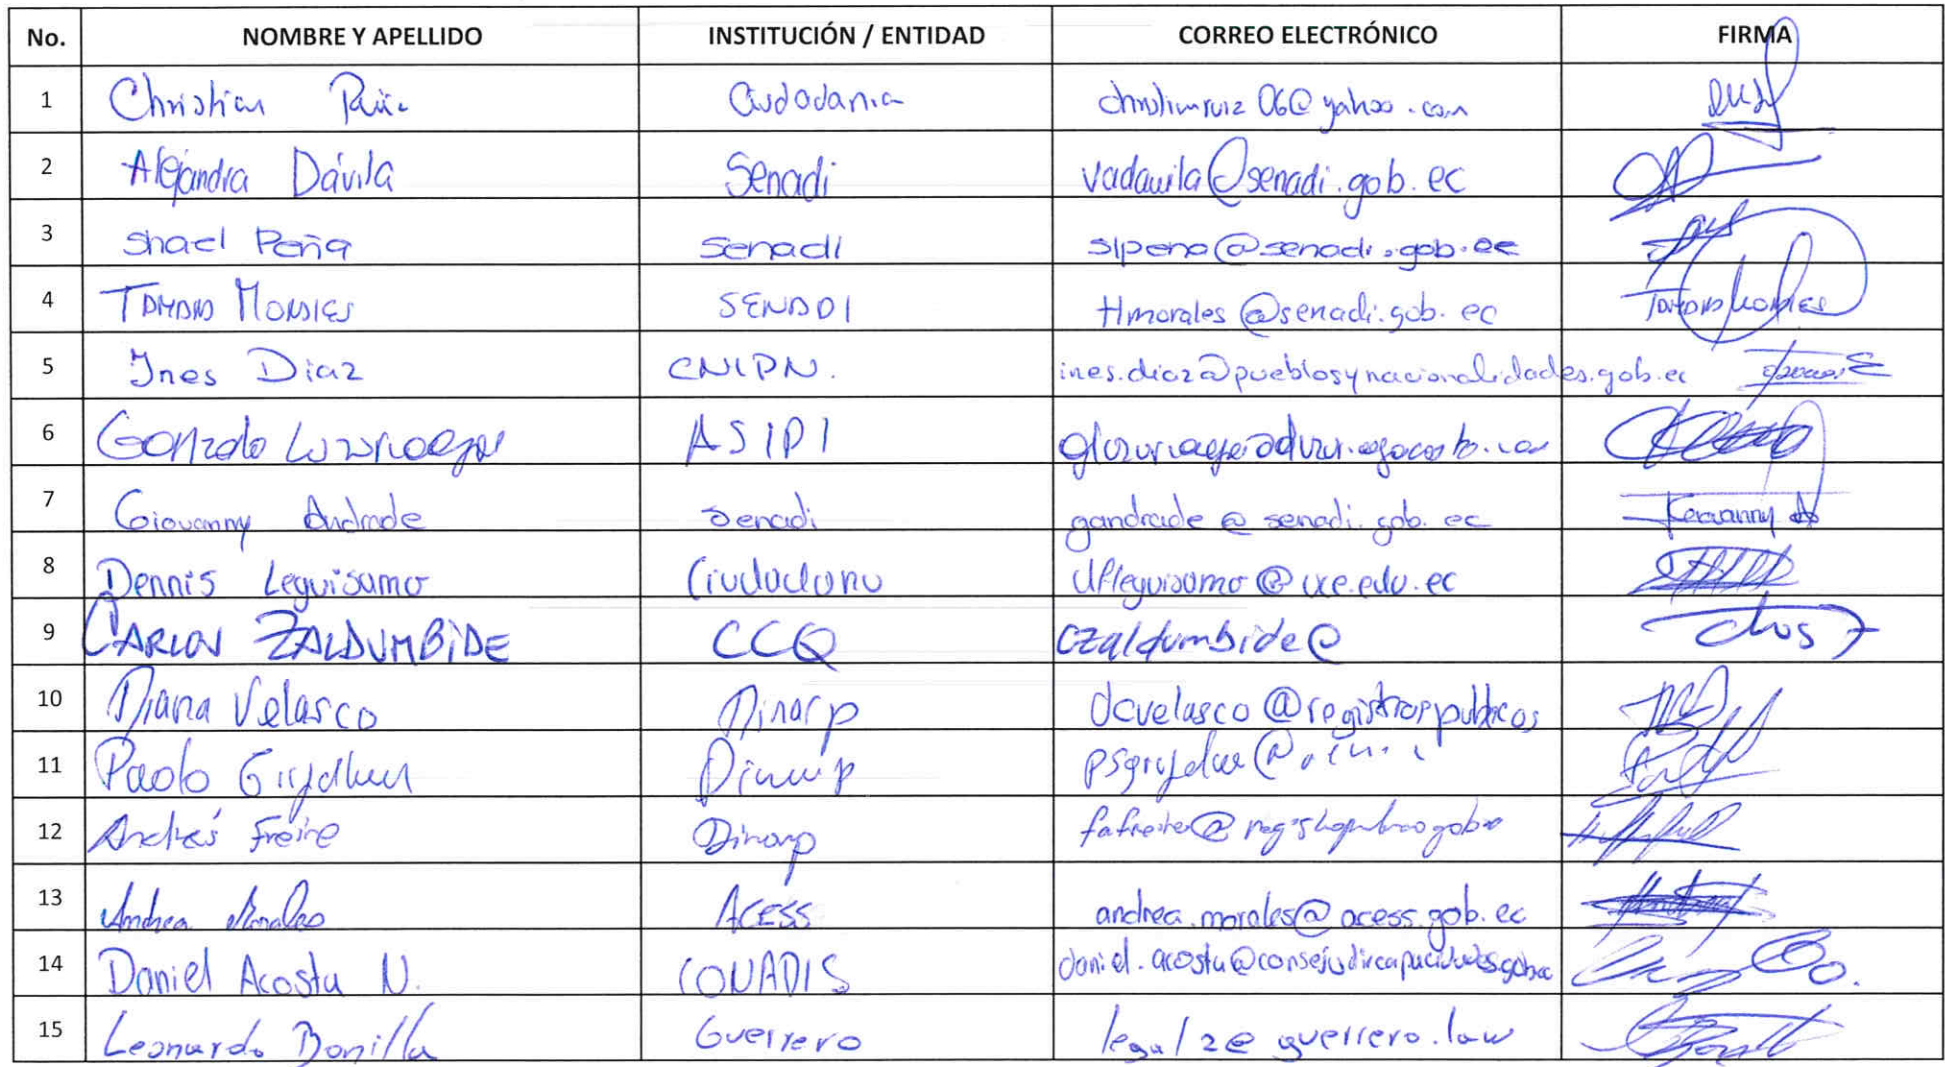 No. NOMBRE Y APELLIDO INSTITUCIÓN / ENTIDAD CORREO ELECTRÓNICO FIRMA
1 Christian Ruiz Ciudadania christianruiz06@yahoo.com
2 Alejandra Dávila Senadi vadavila@senadi.gob.ec
3 Shael Peña Senadi slpena@senadi.gob.ec
4 Morales SENADI tlmorales@senadi.gob.ec
5 Ines Diaz CNIPN. ines.diaz@pueblosynacionalidades.gob.ec
6 Gonzalo ASIPI
7 Giovanny Andrade Senadi gandrade@senadi.gob.ec Geovanny A
8 Dennis Leguisamo Ciudadano dfleguisamo@uce.edu.ec
9 CARLOS ZALDUMBIDE CCQ czaldumbide@
10 Diana Velasco Dinarp dcvelasco@registrospublicos
11 Paolo Dinarp
12 Andrés Freire Dinarp
13 Andrea Morales Acess andrea.morales@acess.gob.ec
14 Daniel Acosta N. CONADIS daniel.acosta@consejodiscapacidades.gob.ec
15 Leonardo Bonilla Guerrero legal2@guerrero.law